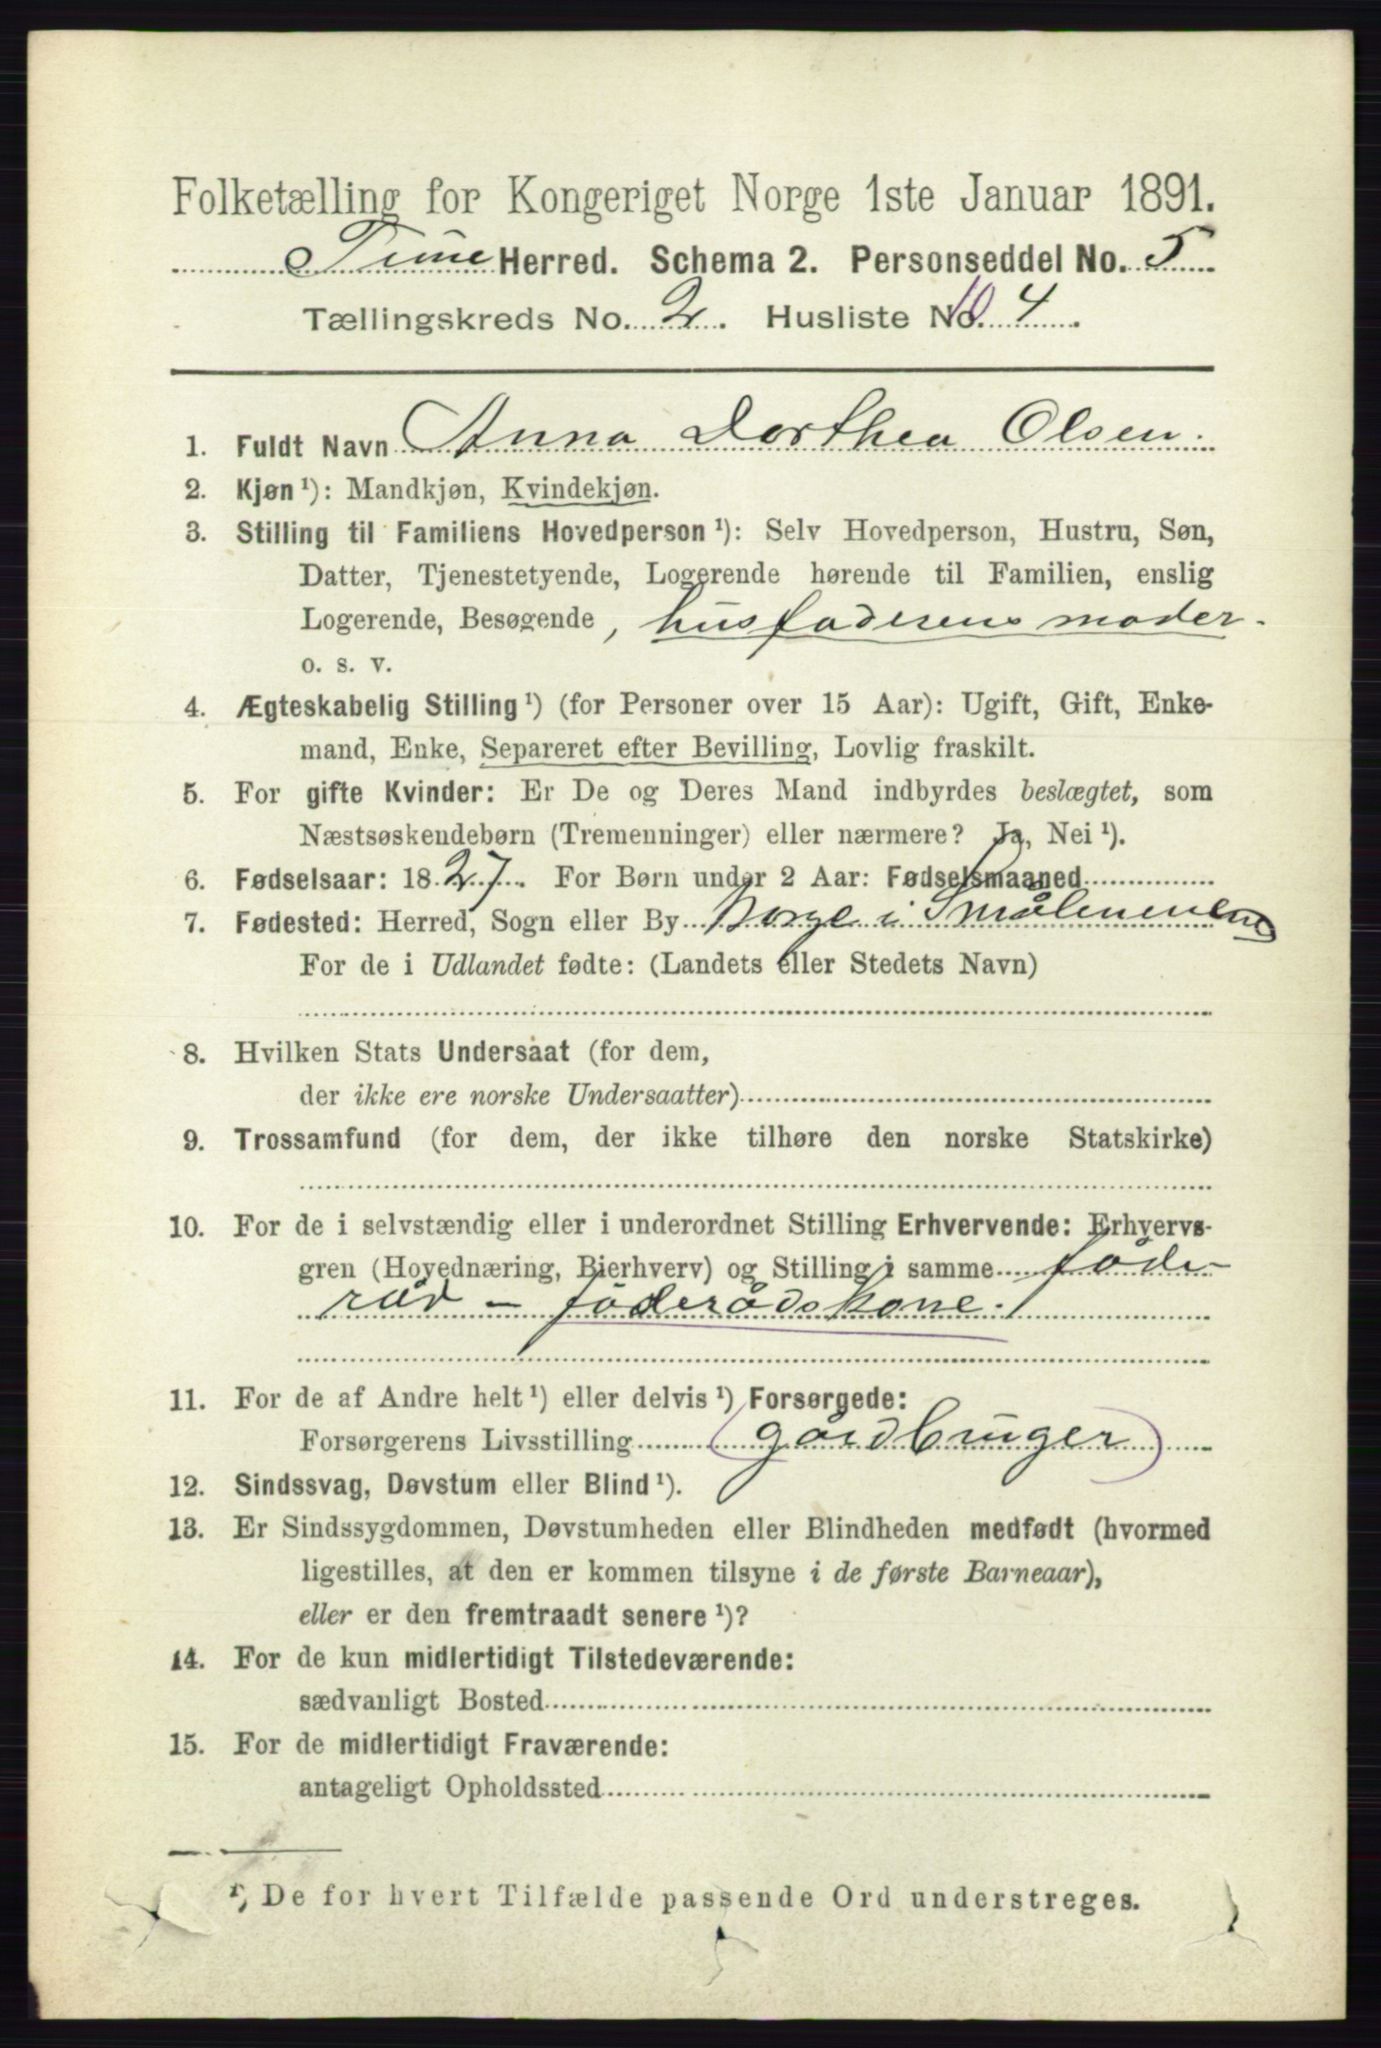 Folketælling for Kongeriget Norge 1ste Januar 1891.
Tune Herred. Schema 2. Personseddel No. 5
Tællingskreds No. 2. Husliste No. 4.
1. Fuldt Navn Anna Dorthea Olsen.
2. Kjøn ¹): Mandkjøn, Kvindekjøn.
3. Stilling til Familiens Hovedperson ¹): Selv Hovedperson, Hustru, Søn,
Datter, Tjenestetyende, Logerende hørende til Familien, enslig
Logerende, Besøgende, husfaderens moder.
o. s. v.
4. Ægteskabelig Stilling ¹) (for Personer over 15 Aar): Ugift, Gift, Enke-
mand, Enke, Separeret efter Bevilling, Lovlig fraskilt.
5. For gifte Kvinder: Er De og Deres Mand indbyrdes beslægtet, som
Næstsøskendebørn (Tremenninger) eller nærmere? Ja, Nei ¹).
6. Fødselsaar: 1827. For Børn under 2 Aar: Fødselsmaaned
7. Fødested: Herred, Sogn eller By Borge i Smålenenene
For de i Udlandet fødte: (Landets eller Stedets Navn)
8. Hvilken Stats Undersaat (for dem,
der ikke ere norske Undersaatter)
9. Trossamfund (for dem, der ikke tilhøre den norske Statskirke)
10. For de i selvstændig eller i underordnet Stilling Erhvervende: Erhvervs-
gren (Hovednæring, Bierhverv) og Stilling i samme föde-
råd - föderådskone.
11. For de af Andre helt ¹) eller delvis ¹) Forsørgede:
Forsørgerens Livsstilling (gårdbruger)
12. Sindssvag, Døvstum eller Blind ¹).
13. Er Sindssygdommen, Døvstumheden eller Blindheden medfødt (hvormed
ligestilles, at den er kommen tilsyne i de første Barneaar),
eller er den fremtraadt senere ¹)?
14. For de kun midlertidigt Tilstedeværende:
sædvanligt Bosted
15. For de midlertidigt Fraværende:
antageligt Opholdssted
¹) De for hvert Tilfælde passende Ord understreges.